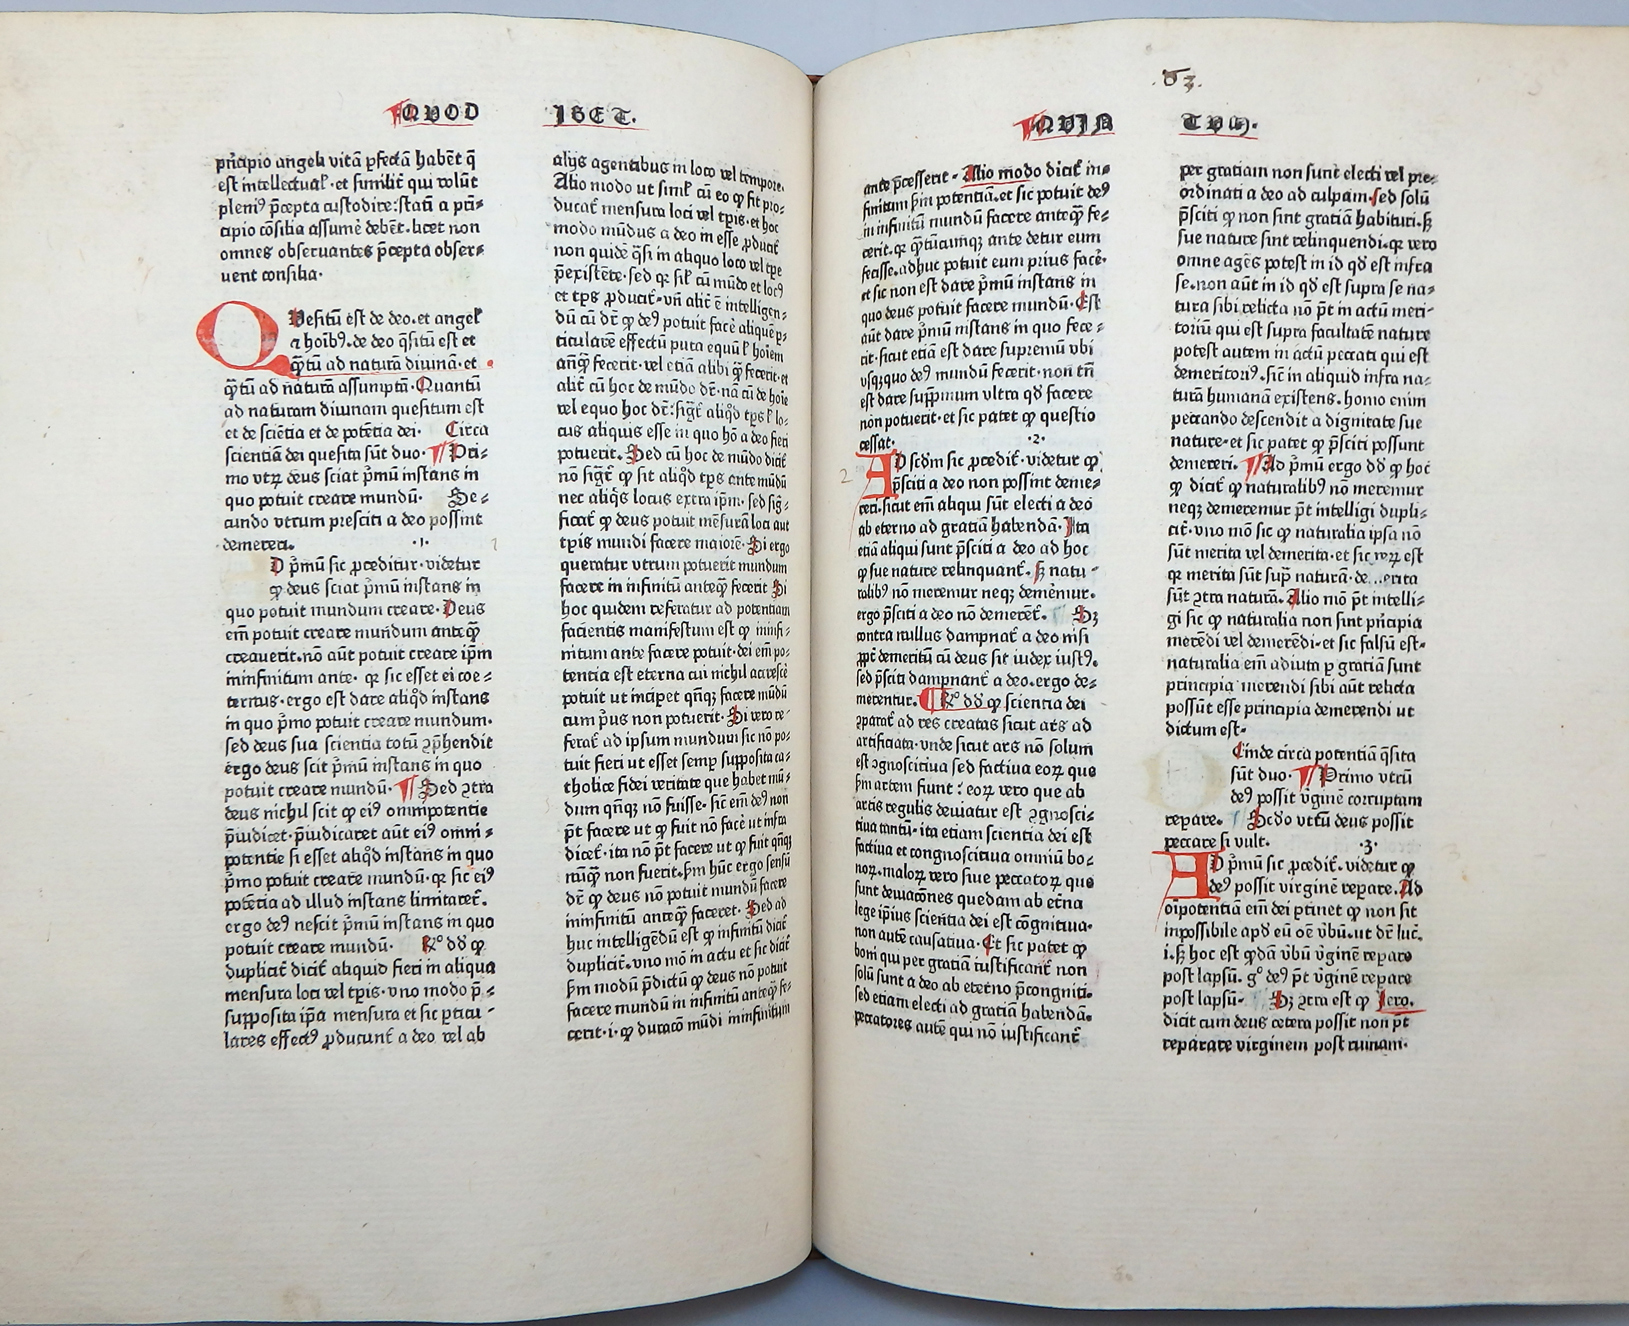 QVOD
LIBET.
pncipio angeli vitã pfectã habẽt q̃
est intellectual̃·et similit̃ qui volũt
pleniꝰ p̃cepta custodire:statĩ a prĩ-
cipio cõsilia assumẽ debẽt·licet non
omnes obseruantes p̃cepta obser-
uent consilia·
Quesitũ ẽst de deo.et angeł
⁊ hoibꝰ.de deo q̃sitũ est et
q̃tũ ad naturã diuinã·et
q̃tũ ad naturã assumptã·Quantũ
ad naturam diuinam quesitum est
et de sciẽtia et de potẽtia dei· Circa
scientiã dei quesita sũt duo·¶Pri-
mo vtꝝ deus sciat p̃mũ instans in
quo potuit creare mundũ· Se-
cundo vtrum presciti a deo possint
demereri. ·1·
D p̃mũ sic ꝓceditur·videtur
ꝙ deus sciat p̃mũ instans in
quo potuit mundum creare·Deus
em̃ potuit creare mundum anteq̃ꝫ
creauerit.nõ aũt potuit creare ip̃m
ininfinitum ante· qꝛ sic esset ei coe-
ternus·ergo est dare aliqd̃ instans
in quo p̃mo potuit creare mundum·
sed deus sua scientia totũ ꝯp̃hendit
ergo deus scit p̃mũ instans in quo
potuit creare mundũ·¶Sed ꝯtra
deus nichil scit ꝙ eiꝰ omnipotentie
p̃iudicet·p̃iudicaret aũt eiꝰ omni-
potentie si esset aliqd̃ instans in quo
p̃mo potuit creare mundũ·qꝛ sic eiꝰ
potẽtia ad illud instans limitaret̃.
ergo deꝰ nescit p̃mũ instans in quo
potuit creare mundũ· R̃º dd̃ ꝙ
duplicit̃ dicit̃ aliquid fieri in aliqua
mensura loci vel tp̃is·vno modo p̃-
supposita ip̃a mensura et sic ꝑticu-
lares effectꝰ ꝓducunt̃ a deo vel ab
alijs agentibus in loco vel tempore·
Alio modo ut simł cũ eo ꝙ fit pro-
ducat̃ mensura loci vel tp̃is·et hoc
modo mũdus a deo in esse ꝓducit̃
non quidẽ q̃si in aliquo loco vel tp̃e
p̃existẽte·sed qꝛ sił cũ mũdo et locꝰ
et tp̃s ꝓducit̃·vñ alit̃ ẽ intelligen-
dũ cũ dr̃ ꝙ deꝰ potuit facẽ aliquẽ ꝑ-
ticularẽ effectũ puta equũ ł hoiẽm
añq̃ꝫ fecerit·vel etiã alibi q̃ꝫ fecerit·et
alit̃ cũ hoc de mũdo dr̃·nã cũ de hoie
vel equo hoc dr̃:sigr̃ aliqd̃ tp̃s ł lo-
cus aliquis esse in quo hõ a deo fieri
potuerit·Sed cũ hoc de mũdo dicit̃
nõ sigr̃ ꝙ sit aliqd̃ tp̃s ante mũdũ
nec aliq̃s locus extra ip̃m·sed sig-
ficat̃ ꝙ deus potuit mẽsurã loci aut
tp̃is mundi facere maiorẽ·Si ergo
queratur vtrum potuerit mundum
facere in infinitũ anteq̃ꝫ fecerit Si
hoc quidem referatur ad potentiam
facientis manifestum est ꝙ ininfi-
nitum ante facere potuit·dei em̃ po-
tentia est eterna cui nichil accrescẽ
potuit ut inciper qñqꝫ facere mũdũ
cum p̃us non potuerit·Si vero re-
ferat̃ ad ipsum mundum sic nõ po-
tuit fieri ut esset semp supposita ca-
tholice fidei veritate que habet mũ-
dum qñqꝫ nõ fuisse·sic em̃ deꝰ non
p̃t facere ut ꝙ fuit nõ facẽ ut infra
dicet̃·ita nõ p̃t facere ut ꝙ fuit qñqꝫ
nũq̃ꝫ non fuerit·p̃m hũc ergo sensũ
dr̃ ꝙ deus nõ potuit mundũ facere
ininfinitũ anteq̃ꝫ faceret·Sed ad
huc intelligẽdũ est ꝙ infinitũ dicit̃
duplicit̃·vno mõ in actu et sic dicit̃
p̃m modum p̃dictũ ꝙ deus nõ potuit
facere mundũ in infinitũ anteq̃ꝫ fe-
cerit·i·ꝙ duracõ mũdi ininfinitum
83.
QVIN
TVM·
ante p̃cesserit·Alio modo dicit̃ in-
finitum p̃m potentiã.et sic potuit deꝰ
in infinitũ mundũ facere anteq̃ꝫ fe-
cerit.qꝛ q̃tũcũmqꝫ ante detur eum
fecisse.adhuc potuit eum prius facẽ·
et sic non est dare p̃mũ instans in
quo deus potuit facere mundũ·Est
aũt dare p̃mũ instans in quo fece-
rit·sicut etiã est dare supremũ vbi
vsqꝫ quo deꝰ mundũ fecerit·non tñ
est dare sup̃mum ultra qd̃ facere
non potuerit·et sic patet ꝙ questio
cessat· ·2·
AD scdm sic ꝓcedit̃·videtur ꝙ
p̃sciti a deo non possint deme-
reri.sicut em̃ aliqui sũt electi a deo
ab eterno ad gratiã habendã·Ita
etiã aliqui sunt p̃sciti a deo ad hoc
ꝙ sue nature relinquant̃.sꝫ natu-
ralibꝰ nõ meremur neqꝫ demẽmur.
ergo p̃sciti a deo nõ demerẽt̃. Sꝫ
contra nullus dampnat̃ a deo nisi
ꝓpt̃ demeritũ cũ deus sit iudex iustꝰ.
sed p̃sciti dampnant̃ a deo.ergo de-
merentur.¶R̃º dd̃ ꝙ scientia dei
ꝯparat̃ ad res creatas sicut ars ad
artificiata·vnde sicut ars nõ solum
est ꝯgnoscitiua sed factiua eoꝝ que
p̃m artem fiunt: eoꝝ vero que ab
artis regulis deuiatur est ꝯgnosci-
tiua tantũ·ita etiam scientia dei est
factiua et congnoscitiua omniũ bo-
noꝝ.maloꝝ vero siue peccatoꝝ que
sunt deuiacões quedam ab et̃na
lege ip̃ius scientia dei est cõgnitiua·
non autẽ causatiua·Et sic patet ꝙ
boni qui per gratiã iustificant̃ non
solũ sunt a deo ab eterno p̃congniti.
sed etiam electi ad gratiã habendã.
peccatores autẽ qui nõ iustificant̃
per gratiam non sunt electi vel pre-
ordinati a deo ad culpam·sed solũ
p̃sciti ꝙ non sint gratiã habituri.sꝫ
sue nature sint relinquendi.qꝛ vero
omne agẽs potest in id qd̃ est infra
se.non aũt in id qd̃ est supra se na-
tura sibi relicta nõ p̃t in actũ meri-
toriũ qui est supra facultatẽ nature
potest autem in actũ peccati qui est
demeritoriꝰ.sic̃ in aliquid infra na-
turã humanã existens.homo enim
peccando descendit a dignitate sue
nature·et sic patet ꝙ p̃sciti possunt
demereri.¶Ad p̃mũ ergo dd̃ ꝙ hoc
ꝙ dicit̃ ꝙ naturalibꝰ nõ meremur
neqꝫ demeremur p̃t intelligi dupli-
cit̃·vno mõ sic ꝙ naturalia ipsa nõ
sũt merita vel demerita·et sic veꝝ est
qꝛ merita sũt sup̃ naturã·de...erita
sũt ꝯtra naturã.Alio mõ p̃t intelli-
gi sic ꝙ naturalia non sint pñcipia
merẽdi vel demerẽdi·et sic falsũ est·
naturalia em̃ adiuta ꝑ gratiã sunt
principia merendi sibi aũt relicta
possũt esse principia demerendi ut
dictum est·
Einde circa potentiã q̃sita
sũt duo·¶Primo vtrũ
deꝰ possit v̈ginẽ corruptam
repare. Scdo vtrũ deus possit
peccare si vult. ·3·
AD p̃mũ sic ꝓcedit̃.videtur ꝙ
deꝰ possit virginẽ repare.Ad
oĩpotentiã em̃ dei ꝑtinet ꝙ non sit
inpossibile apd̃ eũ oẽ v̈bũ.ut dr̃ luc̃.
i.sꝫ hoc est qd̃ã v̈bũ v̈ginẽ repare
post lapsũ. gº deꝰ p̃t v̈ginẽ repare
post lapsũ· Sꝫ ꝯtra est ꝙ Iero.
dicit cum deus cetera possit non p̃t
reparare virginem post ruinam·